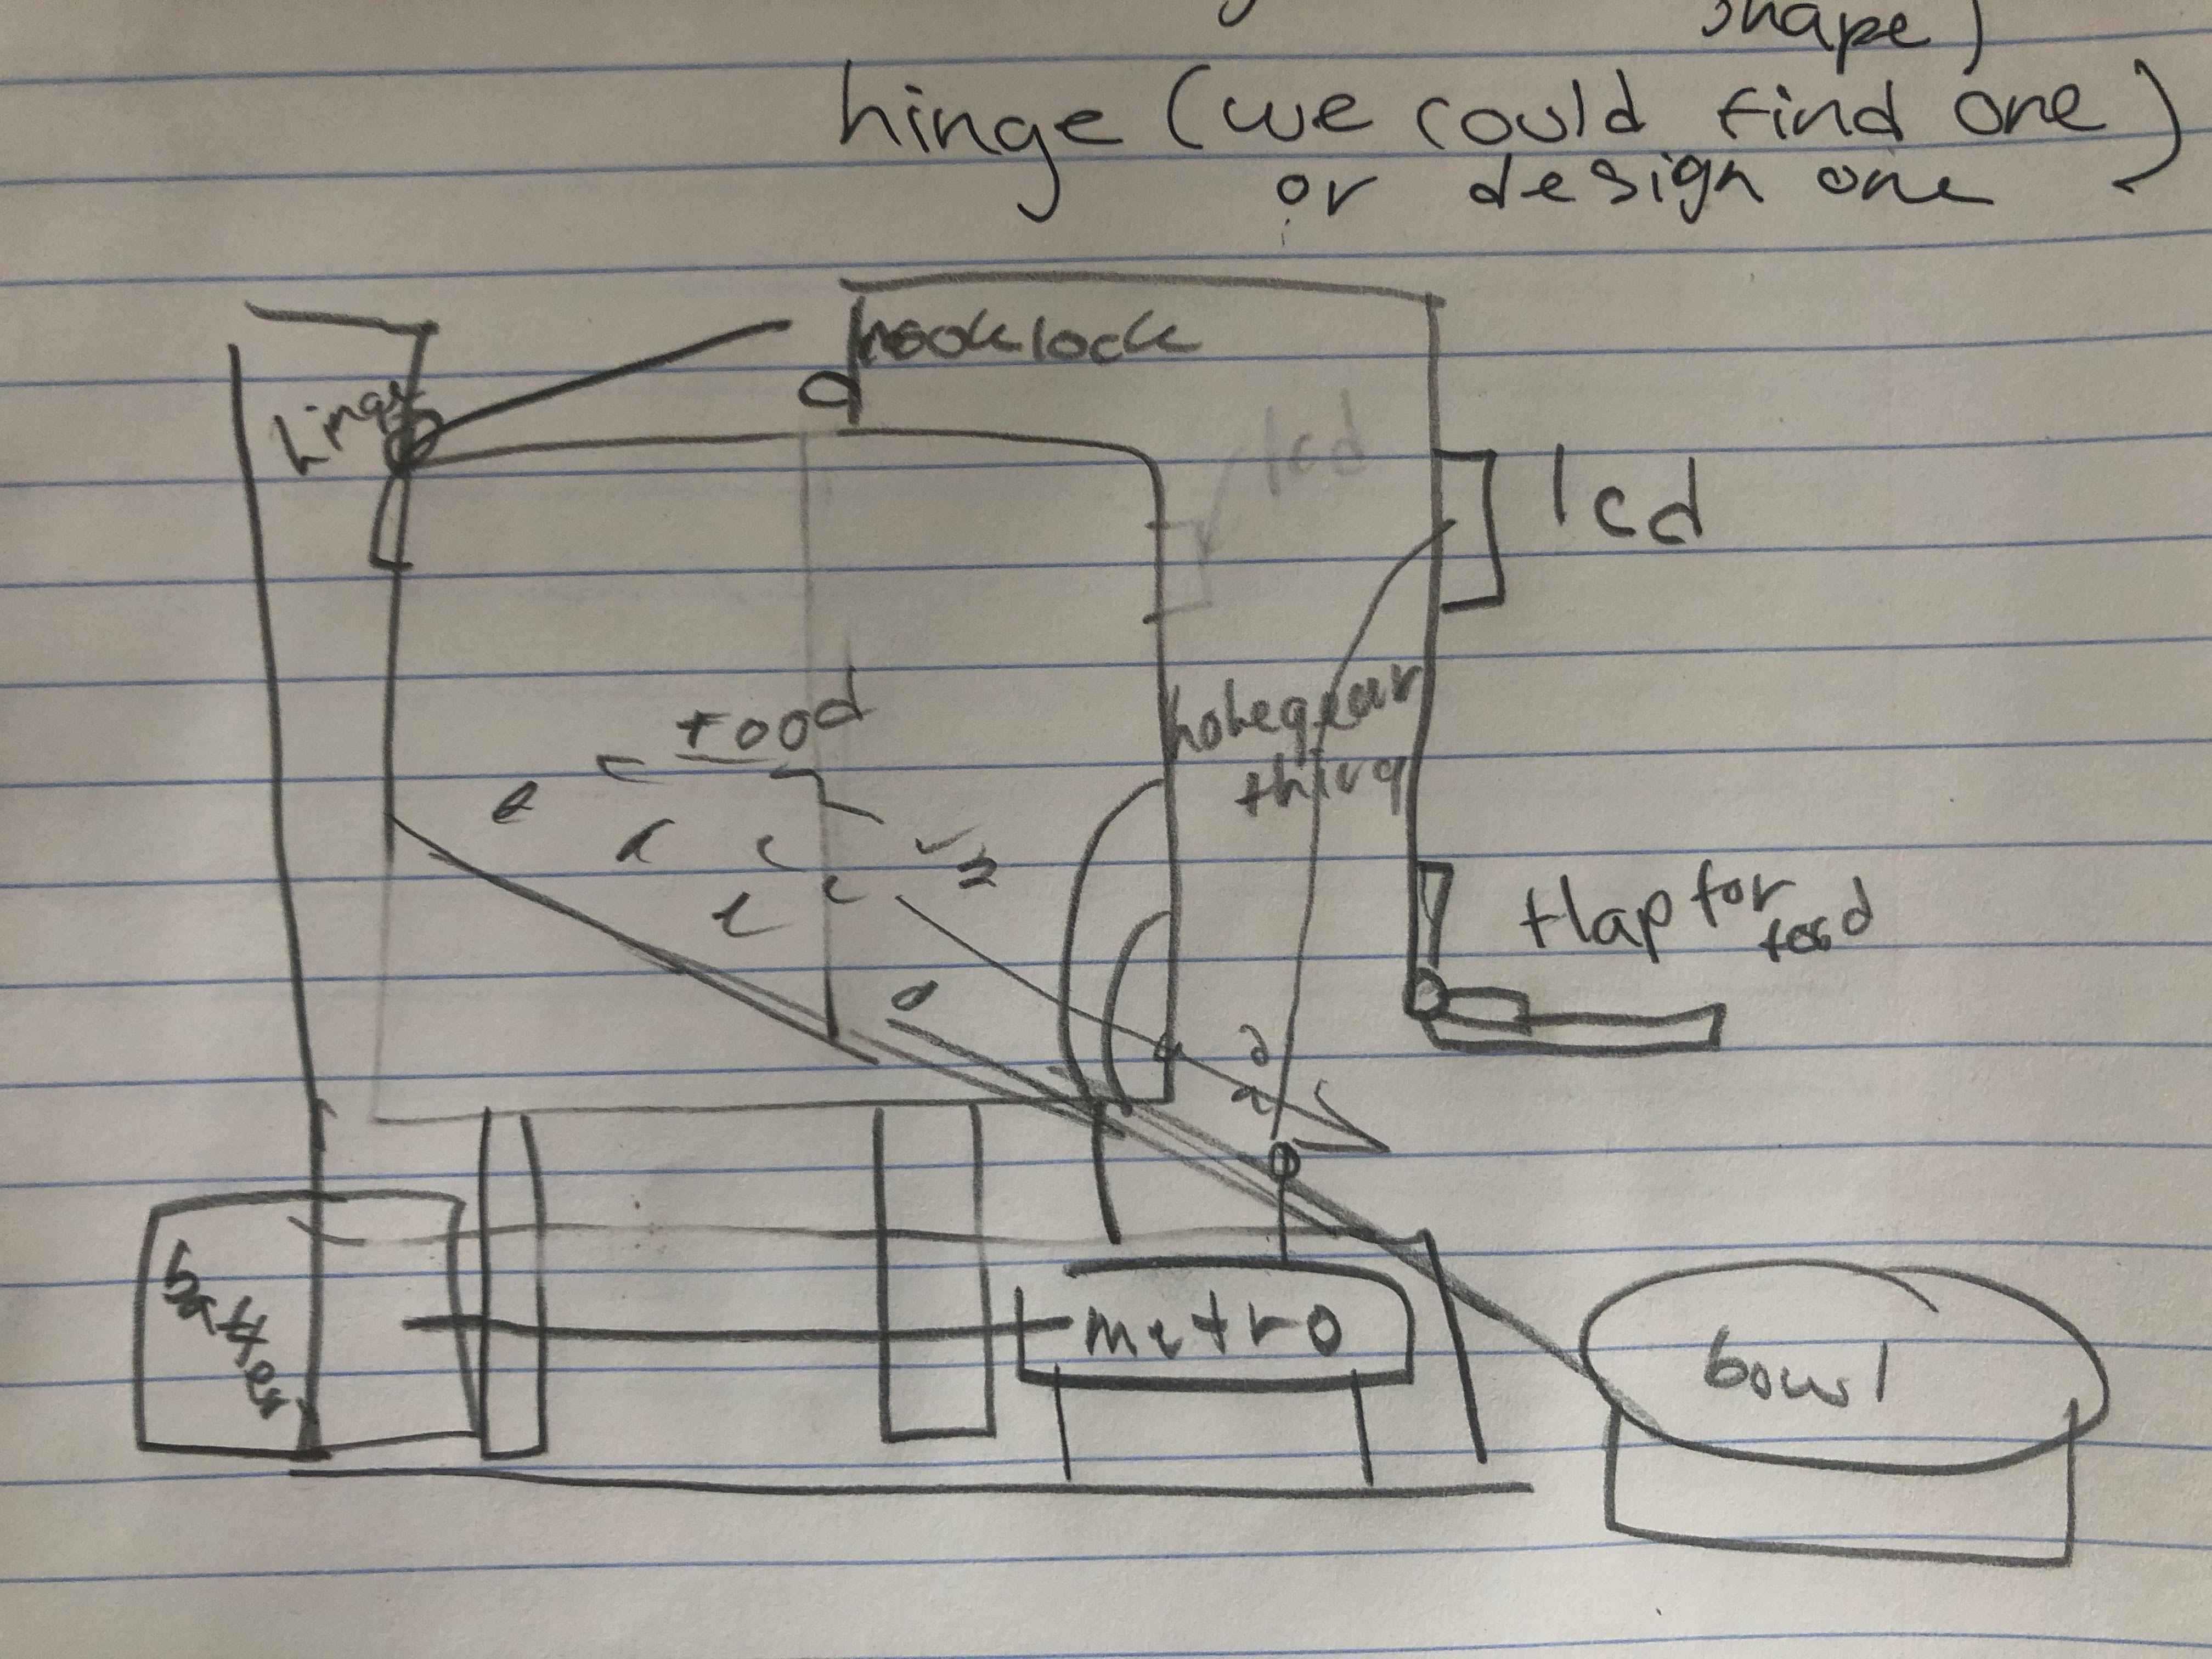 shape)
hinge (we could find one
or design one)
hook lock
hinge
lcd
lcd
food
thing
flap for
food
battery
metro
bowl